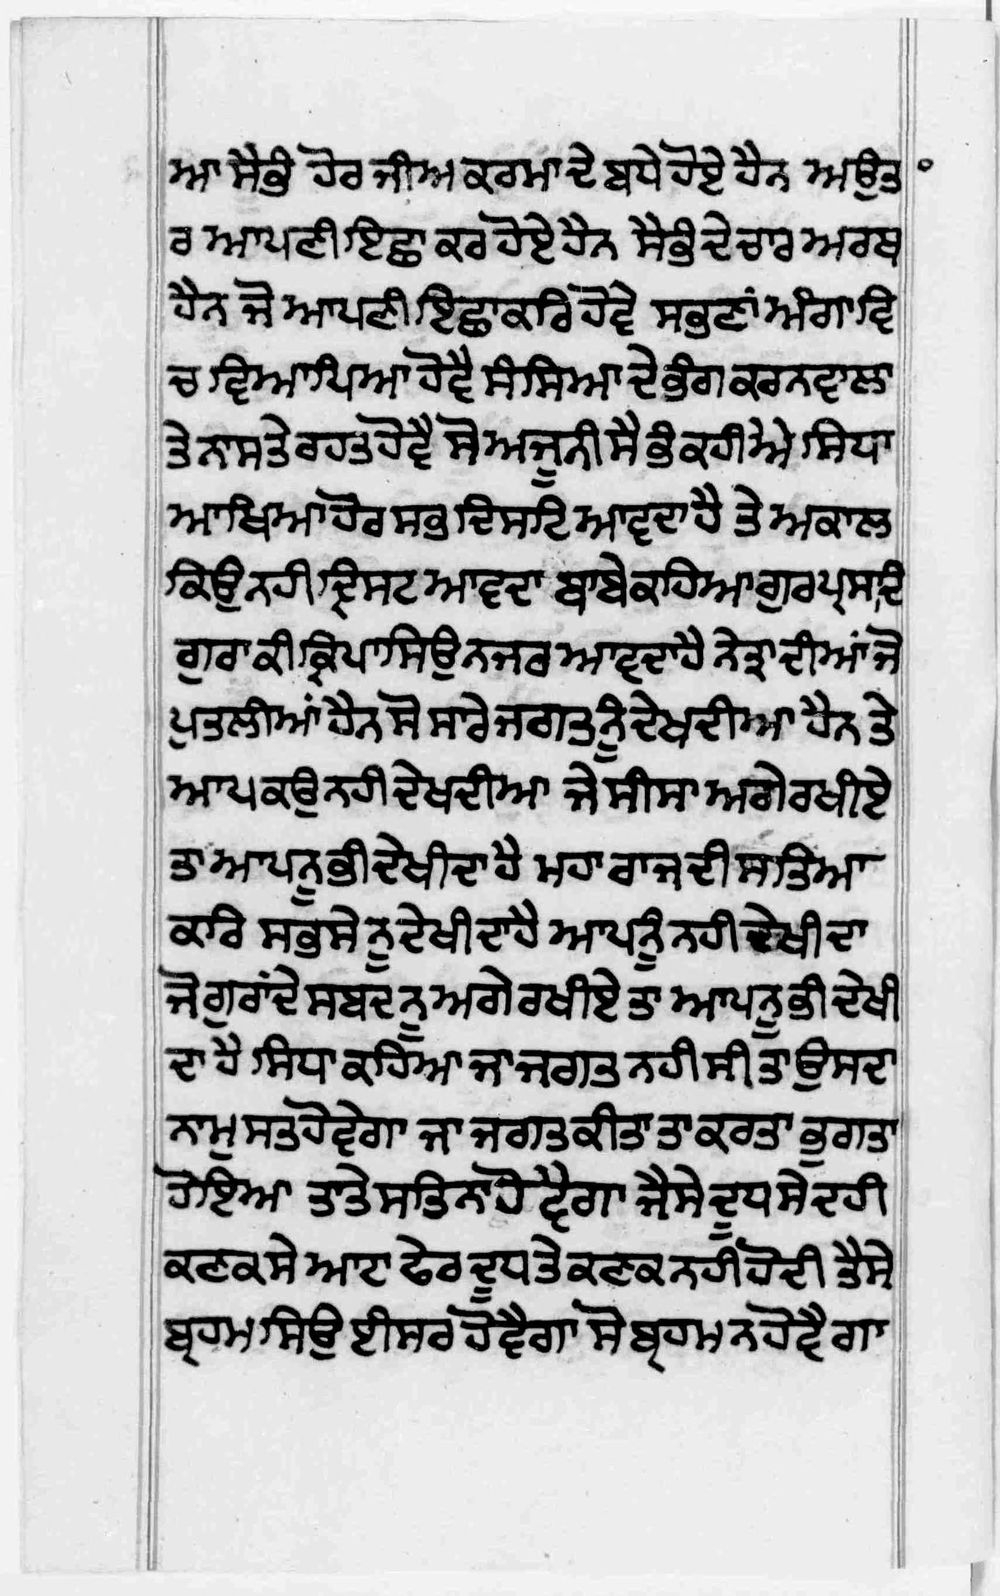 ਆ ਸੈਭੰ ਹੋਰ ਜੀਅ ਕਰਮਾ ਦੇ ਬਧੇ ਹੋਏ ਹੈਨ ਅਉਤ
ਰ ਆਪਣੀ ਇਛਾ ਕਰ ਹੋਏ ਹੈਨ ਸੈਭੰ ਦੇ ਚਾਰ ਅਰਥ
ਹੈਨ ਜੋ ਆਪਣੀ ਇਛਾ ਕਰਿ ਹੋਵੇ ਸਭਣਾਂ ਅੰਗਾ ਵਿ
ਚ ਵਿਆਪਿਆ ਹੋਵੈ ਸੰਸਿਆ ਦੇ ਭੰਗ ਕਰਨ ਵਾਲਾ
ਤੇ ਨਾਸ ਤੇ ਰਹਤ ਹੋਵੈ ਸੋ ਅਜੂਨੀ ਸੈਭੰ ਕਹੀਐ ਸਿਧਾ
ਆਖਿਆ ਹੋਰ ਸਭ ਦਿਸਟਿ ਆਵਦਾ ਹੈ ਤੇ ਅਕਾਲ
ਕਿਉ ਨਹੀ ਦ੍ਰਿਸਟ ਆਵਦਾ ਬਾਬੇ ਕਹਿਆ ਗੁਰਪ੍ਰਸਾਦਿ
ਗੁਰਾ ਕੀ ਕ੍ਰਿਪਾ ਸਿਉ ਨਜਰ ਆਵਦਾ ਹੈ ਨੇਤ੍ਰਾ ਦੀਆਂ ਜੋ
ਪੁਤਲੀਆਂ ਹੈਨ ਸੋ ਸਾਰੇ ਜਗਤ ਨੂੰ ਦੇਖਦੀਆ ਹੈਨ ਤੇ
ਆਪ ਕਉ ਨਹੀ ਦੇਖਦੀਆ ਜੇ ਸੀਸਾ ਅਗੇ ਰਖੀਏ
ਤਾ ਆਪ ਨੂ ਭੀ ਦੇਖੀਦਾ ਹੈ ਮਹਾਰਾਜ ਦੀ ਸਤਿਆ
ਕਰਿ ਸਭਸੇ ਨੂ ਦੇਖੀਦਾ ਹੈ ਆਪ ਨੂੰ ਨਹੀ ਦੇਖੀਦਾ
ਜੋ ਗੁਰਾਂ ਦੇ ਸਬਦ ਨੂ ਅਗੇ ਰਖੀਏ ਤਾ ਆਪ ਨੂ ਭੀ ਦੇਖੀ
ਦਾ ਹੈ ਸਿਧਾ ਕਹਿਆ ਜਾ ਜਗਤ ਨਹੀ ਸੀ ਤਾ ਉਸਦਾ
ਨਾਮੁ ਸਤ ਹੋਵੇਗਾ ਜਾ ਜਗਤ ਕੀਤਾ ਤਾ ਕਰਤਾ ਭੁਗਤਾ
ਹੋਇਆ ਤਾਤੇ ਸਤਿ ਨਾ ਹੋਵੈਗਾ ਜੈਸੇ ਦੂਧ ਸੇ ਦਹੀ
ਕਣਕ ਸੇ ਆਟਾ ਫੇਰ ਦੂਧ ਤੇ ਕਣਕ ਨਹੀਂ ਹੋਦੀ ਤੈਸੇ
ਬ੍ਰਹਮ ਸਿਉ ਈਸਰ ਹੋਵੈਗਾ ਸੋ ਬ੍ਰਹਮ ਨ ਹੋਵੈਗਾ